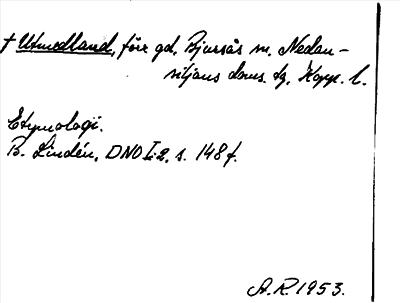 † Utmedland, före gd. Bjursås sn. Nedan-
siljans doms. tg. Kopp. l.
Etymologi.
B. Lindén, DNO I:2, s. 148 f.
A.R. 1953.